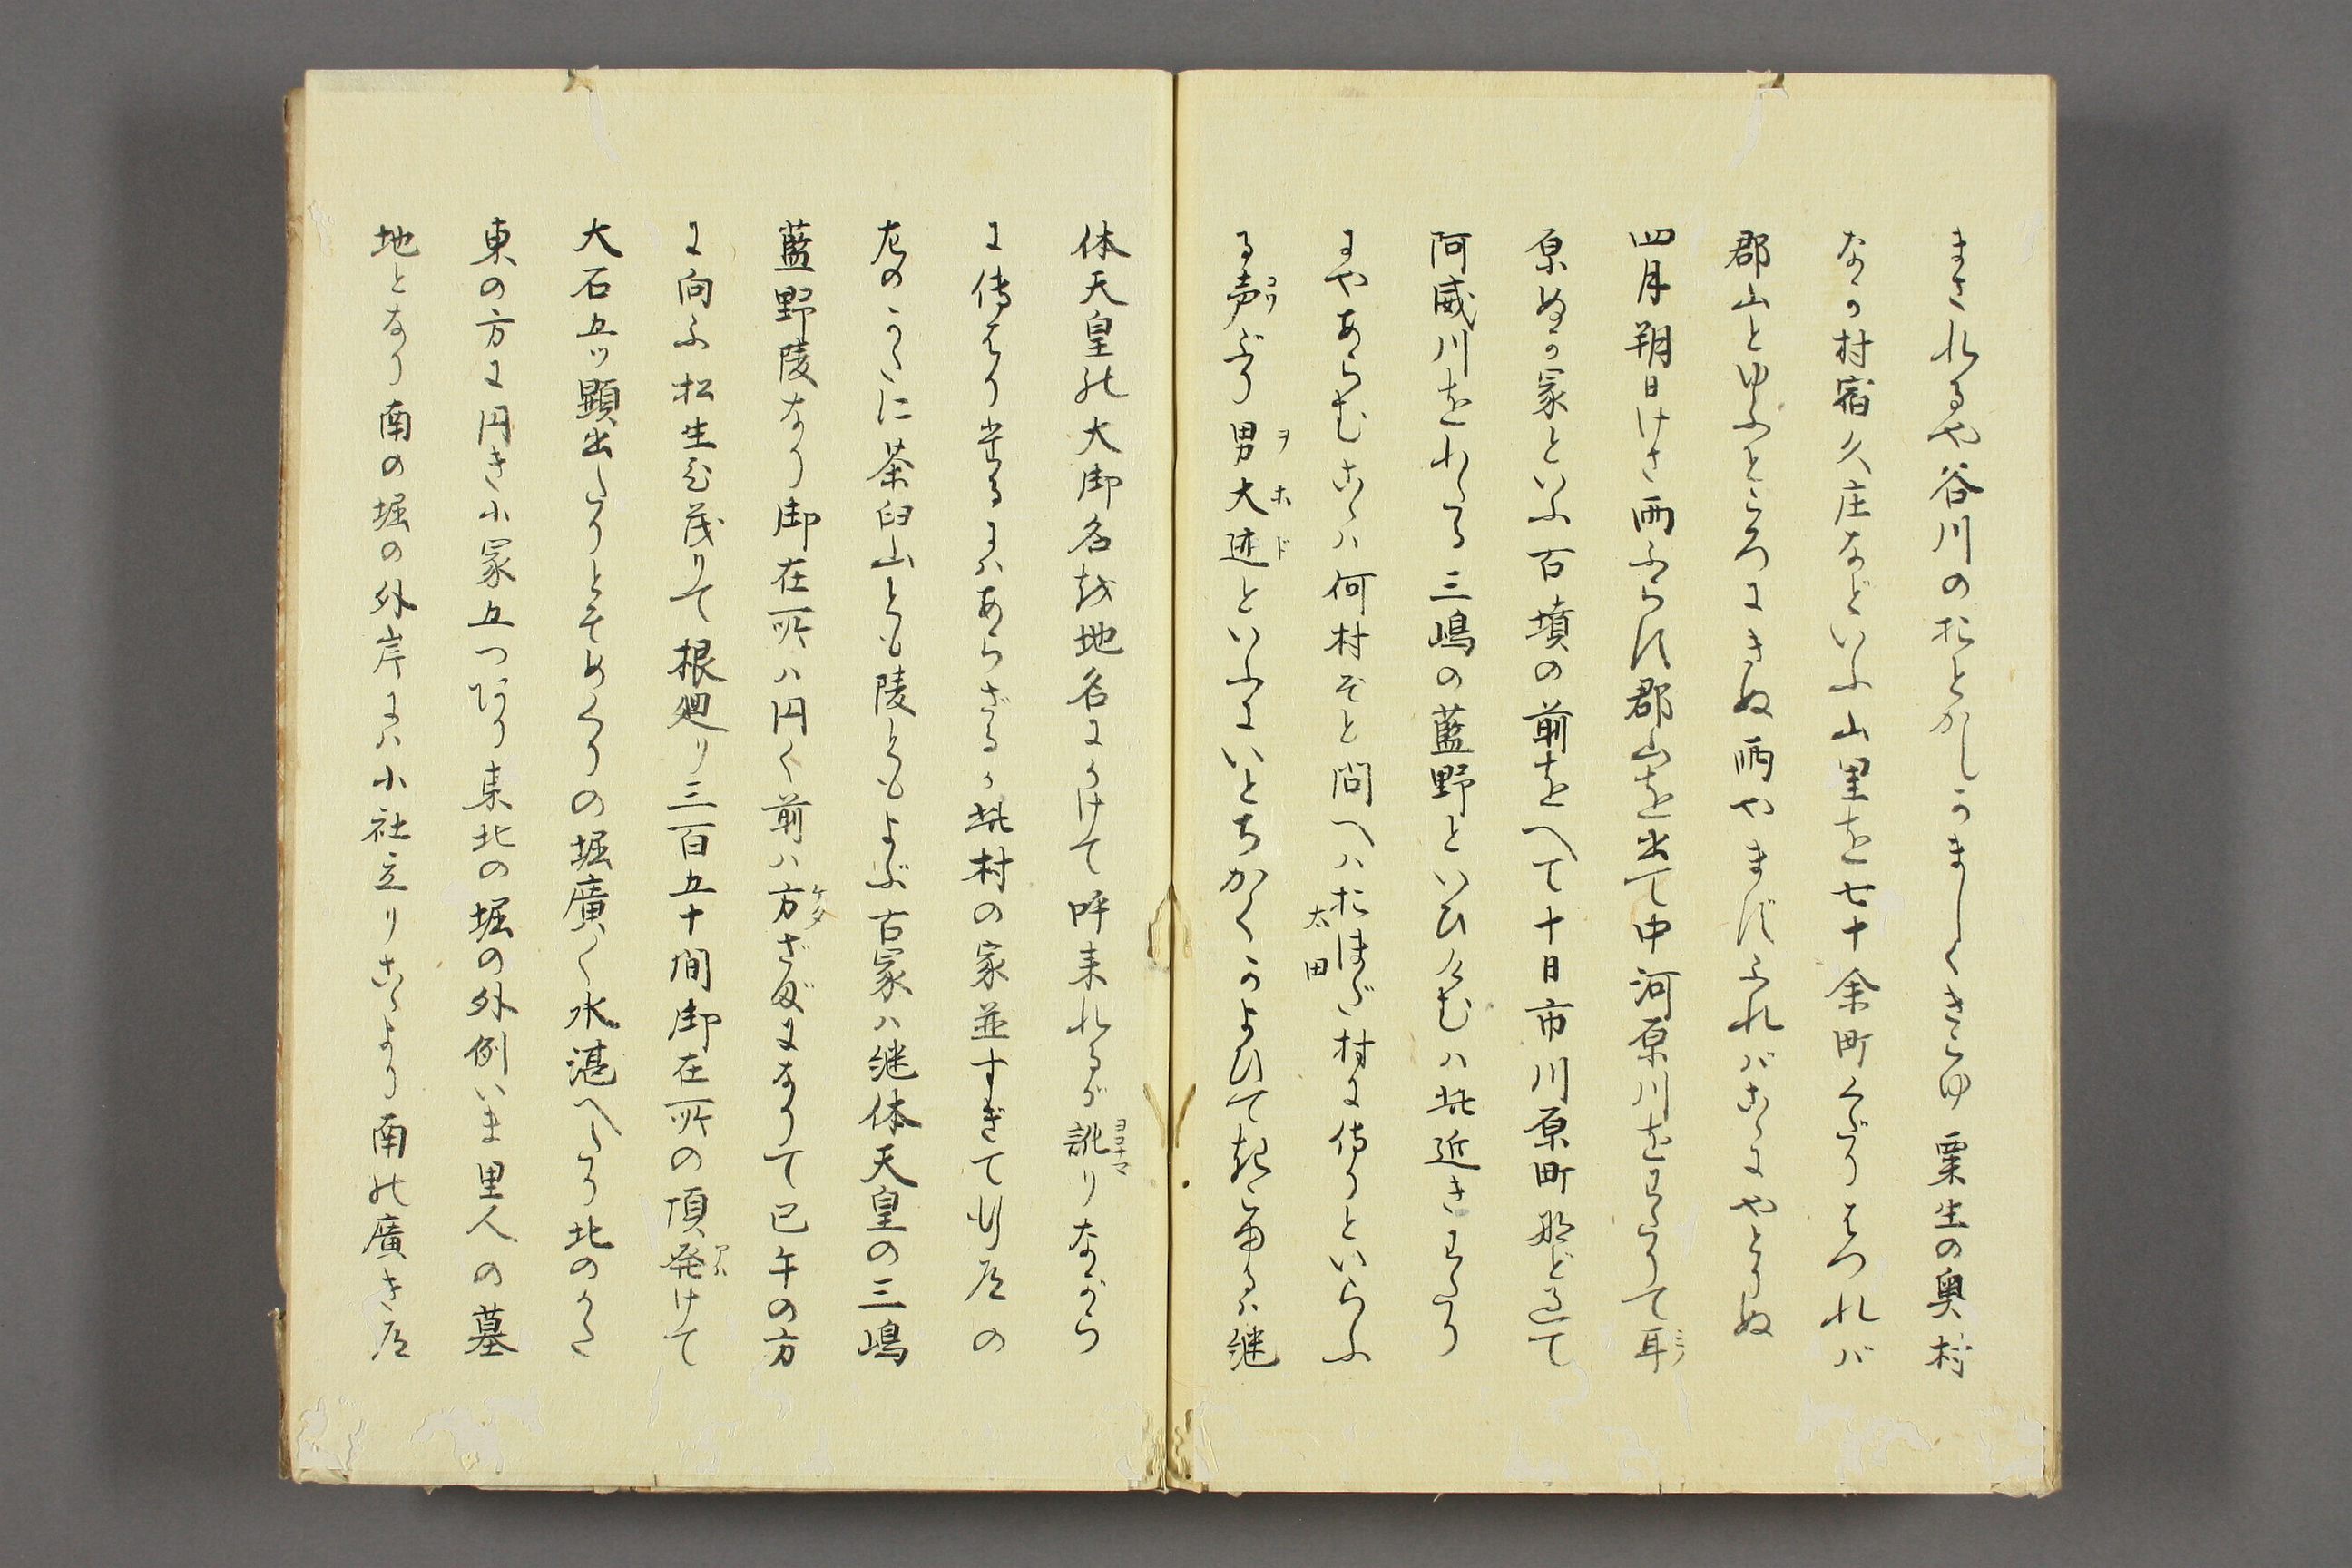 まされるや谷川のおとかしかましくきこゆ粟生の奥村
なか村宿久庄などいふ山里を七十余町くだりはつれバ
郡山とゆふところにきぬ雨やまずふれバこゝにやとりぬ
四月朔日けさ雨ふらず郡山を出て中河原川をわたりて耳ミヽ
原ぬか冢といふ百墳の前をへて十日市川原町などこえて
阿威川をわたる三嶋の藍野といひけむハ此近きわたり
にやあらむこゝハ何村ぞと問へハおほだ太田村に侍りといらふ
る声コワぶり男ヲ大ホ迹ドといふにいとちかくかよひて聞ゆるハ継
体天皇の大御名を地名にかけて呼来れるが訛ヨコナマりながら
に傳はり来るにハあらざるか此村の家並すぎて行道の
左のかたに茶臼山とも陵ともよぶ古冢ハ継体天皇の三嶋
藍野陵なり御在所ハ円く前ハ方ケタざまになりて巳午の方
に向ふ松生ひ茂りて根廻り三百五十間御在所の頂発アバけて
大石五ツ顕出たりとぞめくりの堀廣く水湛へたり北のかた
東の方に円き小冢五つあり東北の堀の外例いま里人の墓
地となり南の堀の外岸にハ小社立りこゝより南の廣き道